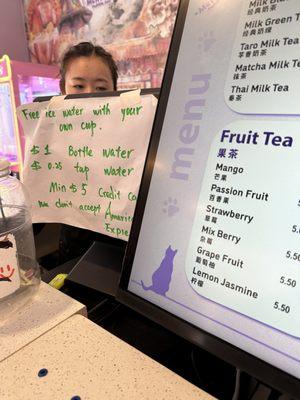 Free ice water with your
own cup.
$1 Bottle water
$0.25 tap water
Min $5 Credit
We don't accept America
Express
menu
经典奶茶
Milk Green T
经典奶绿
Taro Milk Tea
芋香奶茶
Matcha Milk Te
抹茶
Thai Milk Tea
泰茶
Fruit Tea
果茶
Mango
芒果
Passion Fruit
百香果
Strawberry
草莓
Mix Berry
杂莓
Grape Fruit
葡萄柚
Lemon Jasmine
柠檬
5.50
5.50
5.50
5.50